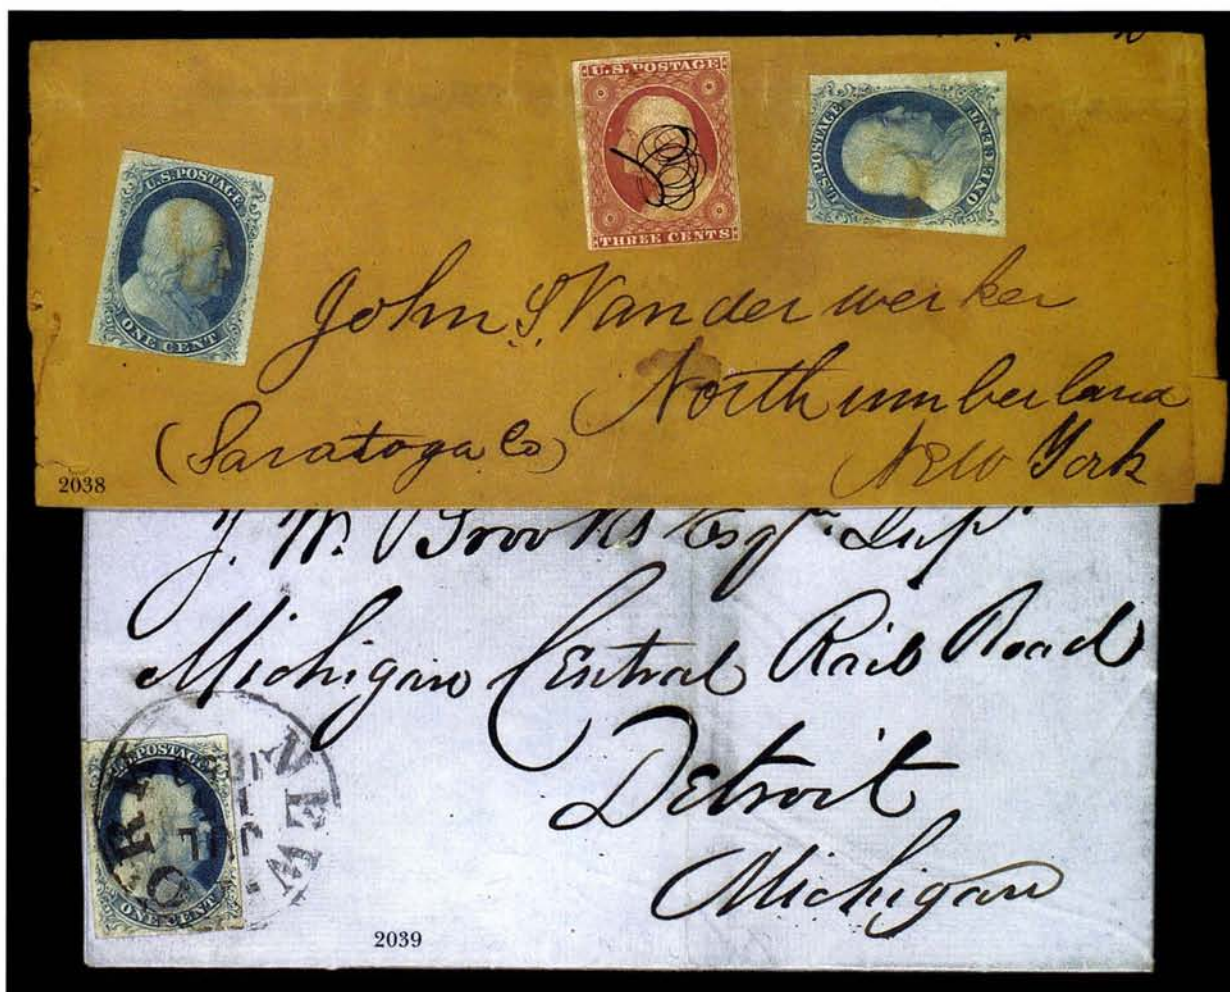 U.S. POSTAGE
THREE CENTS
U.S. POSTAGE
ONE CENT
U.S. POSTAGE
ONE CENT
John S Vanderwerker
Northumberland
(Saratoga Co)
New York
2038
J. W. Brooks Esqr. Supt
Michigan Central Rail Road
Detroit
Michigan
U.S. POSTAGE
ONE CENT
NEW
JUL
2039